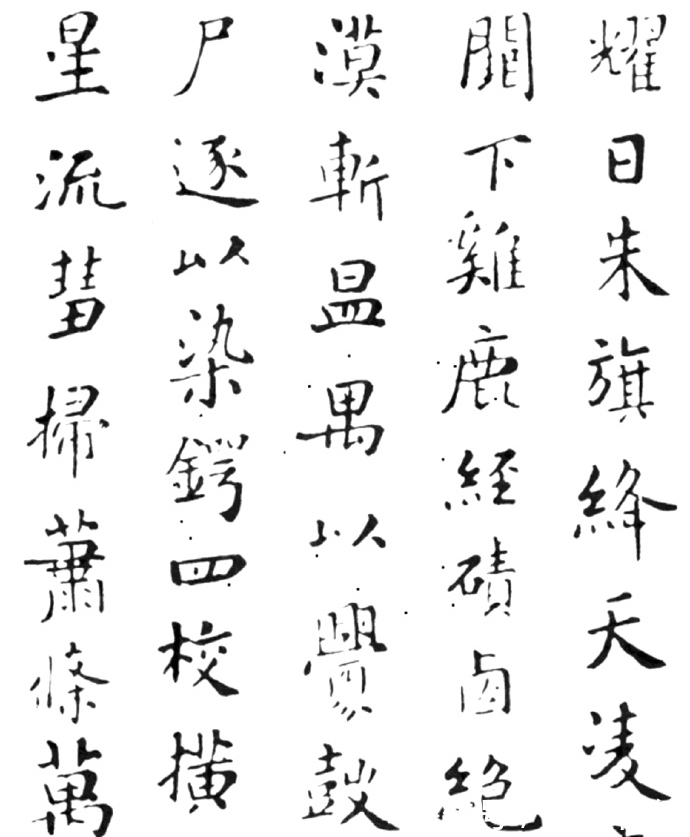 耀日朱旗絳天凌
闕下雞鹿經磧鹵絕
漠斬昷禺以釁鼓
尸逐以染鍔四校撗
星流彗掃蕭條萬